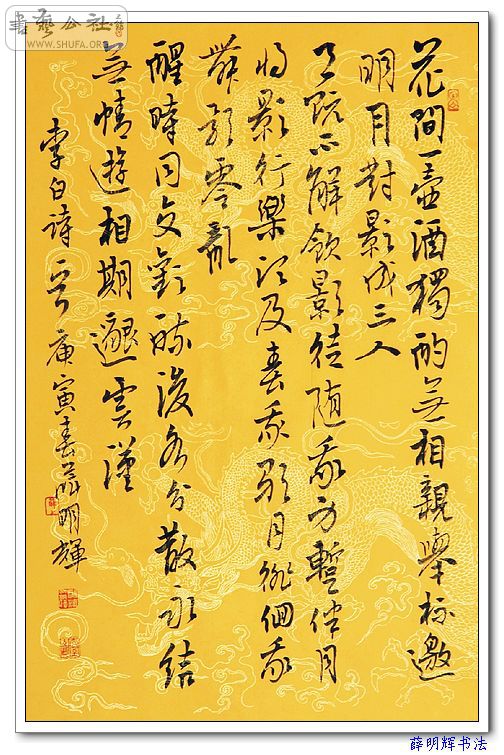 書藝公社
WWW.SHUFA.ORG
花間一壺酒獨酌無相親舉杯邀
明月對影成三人
月既不解飲影徒隨我身暫伴月
將影行樂須及春我歌月徘徊我
舞影零亂
醒時同交歡醉後各分散永結
無情遊相期邈雲漢
李白詩一首庚寅春薛明輝
薛明辉书法